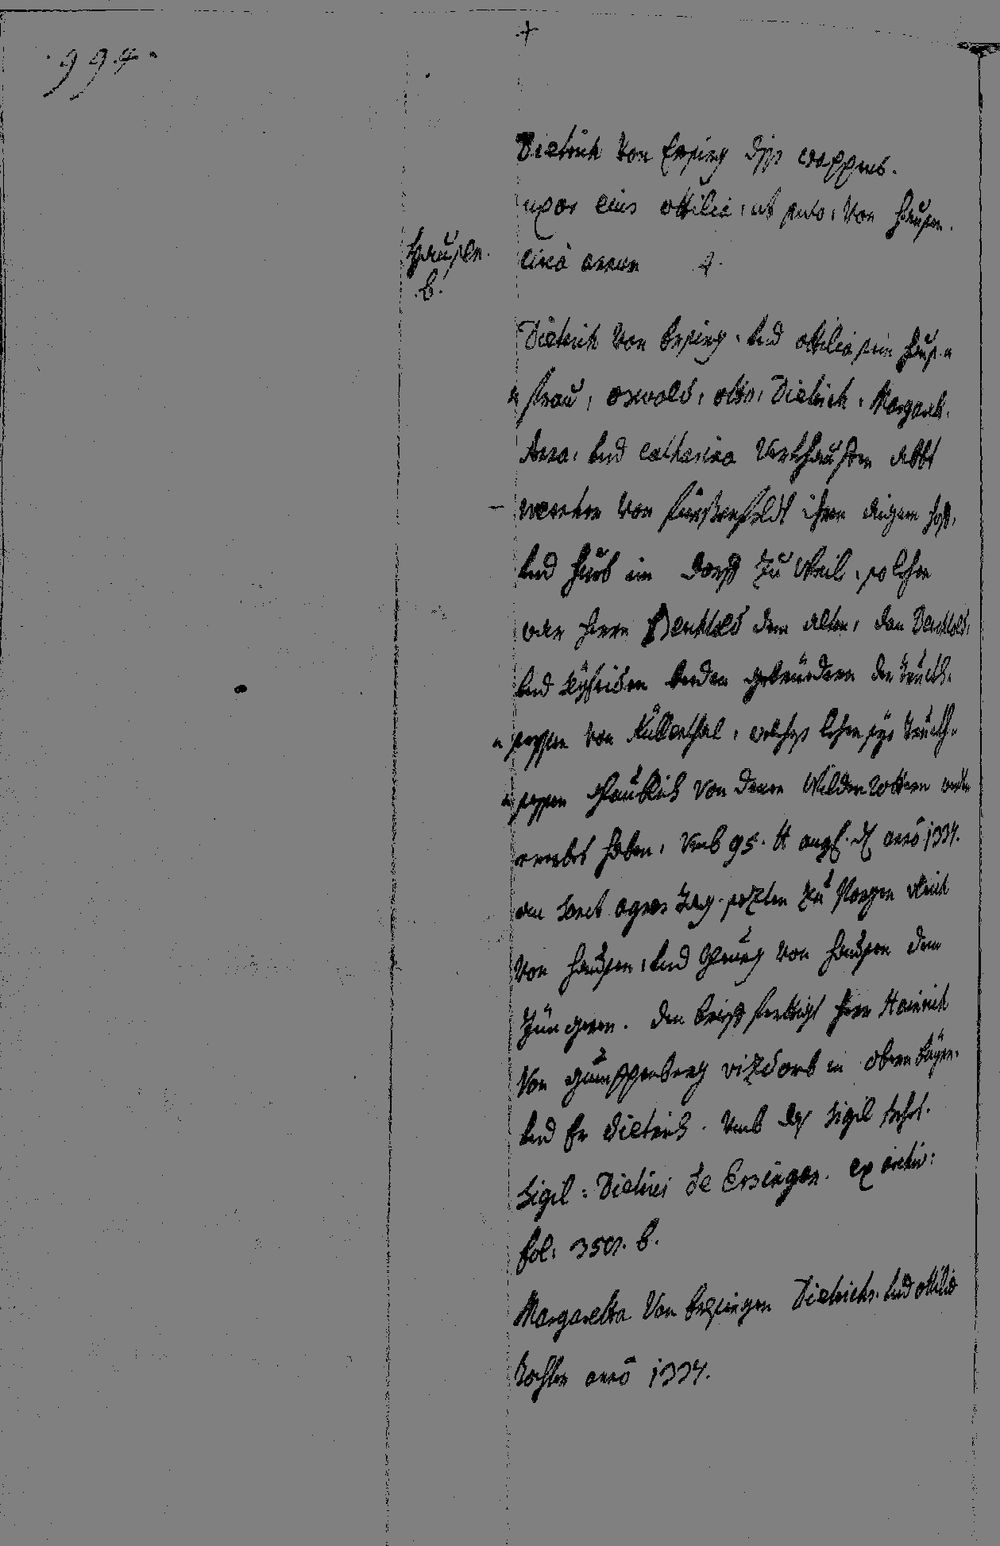 994.
Dietrich von Ersing diss wappens.
uxor eius ottilia, ut puto, von Hausen.
Hausen. circa annum
B.
Dietrich von Ersing. und ottilia sein Haus=
frau, oswald, otto, Dietrich, Margaret,
Anna, und Catharina verkhauffen Abbt
von Fürstenfeldt ihren aigen hoff,
und hueb im Dorff zu Weil, solchen
oder herrn Berchtold dem alten, dan Berchtold,
und Seyfriden beeden gebrüedern den Truch=
sessen von Küllenthal, welches lehen sye Truch=
sessen von denen Wildenrottern
haben, umb 95. anno 1334.
an Sanct agnes tag. sezten zu
von Hausen, und von Hausen dem
Jüngeren. den brieff fertigt herr Hainrich
von Gumppenberg vizdomb in obern Bayrn.
und Er Dietrich. umb das Sigil steht.
Sigil: Dietrici de Ersingen. ex archiv:
fol: 350. b.
Margaretha von Ersingen Dietrichs. und ottilia
Tochter anno 1334.